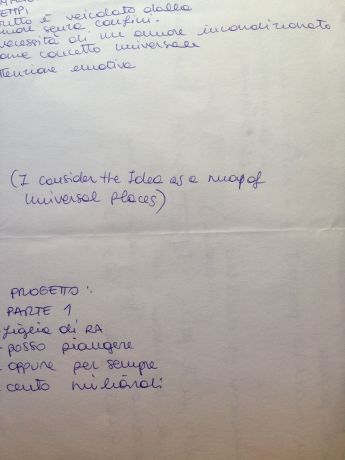 TEMPI
tutto è veicolato dalla
senza confini.
necessità di un amore incondizionato
come concetto universale
emotiva
(I consider the Idea as a map of
universal places)
PROGETTO:
PARTE 1
di RA
- posso piangere
- oppure per sempre
- cento miliardi